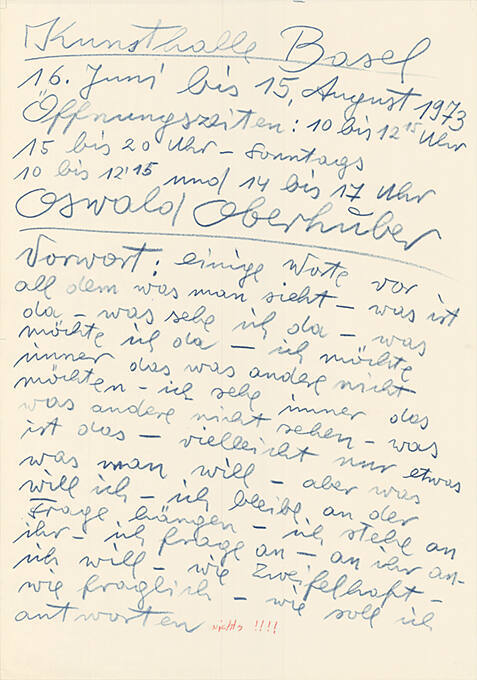 Kunsthalle Basel
16. Juni bis 15. August 1973
Öffnungszeiten: 10 bis 12¹⁵ Uhr
15 bis 20 Uhr – Sonntags
10 bis 12¹⁵ und 14 bis 17 Uhr
Oswald Oberhuber
Vorwort: einige Worte vor
all dem was man sieht – was ist
da – was sehe ich da – was
möchte ich da – ich möchte
immer das was andere nicht
möchten – ich sehe immer das
was andere nicht sehen – was
ist das – vielleicht nur etwas
was man will – aber was
will ich – ich bleibe an der
Frage hängen – ich stehe an
ihr – ich frage an – an ihr an–
ich will – wie zweifelhaft –
wie fraglich – wie soll ich
antworten nichts !!!!